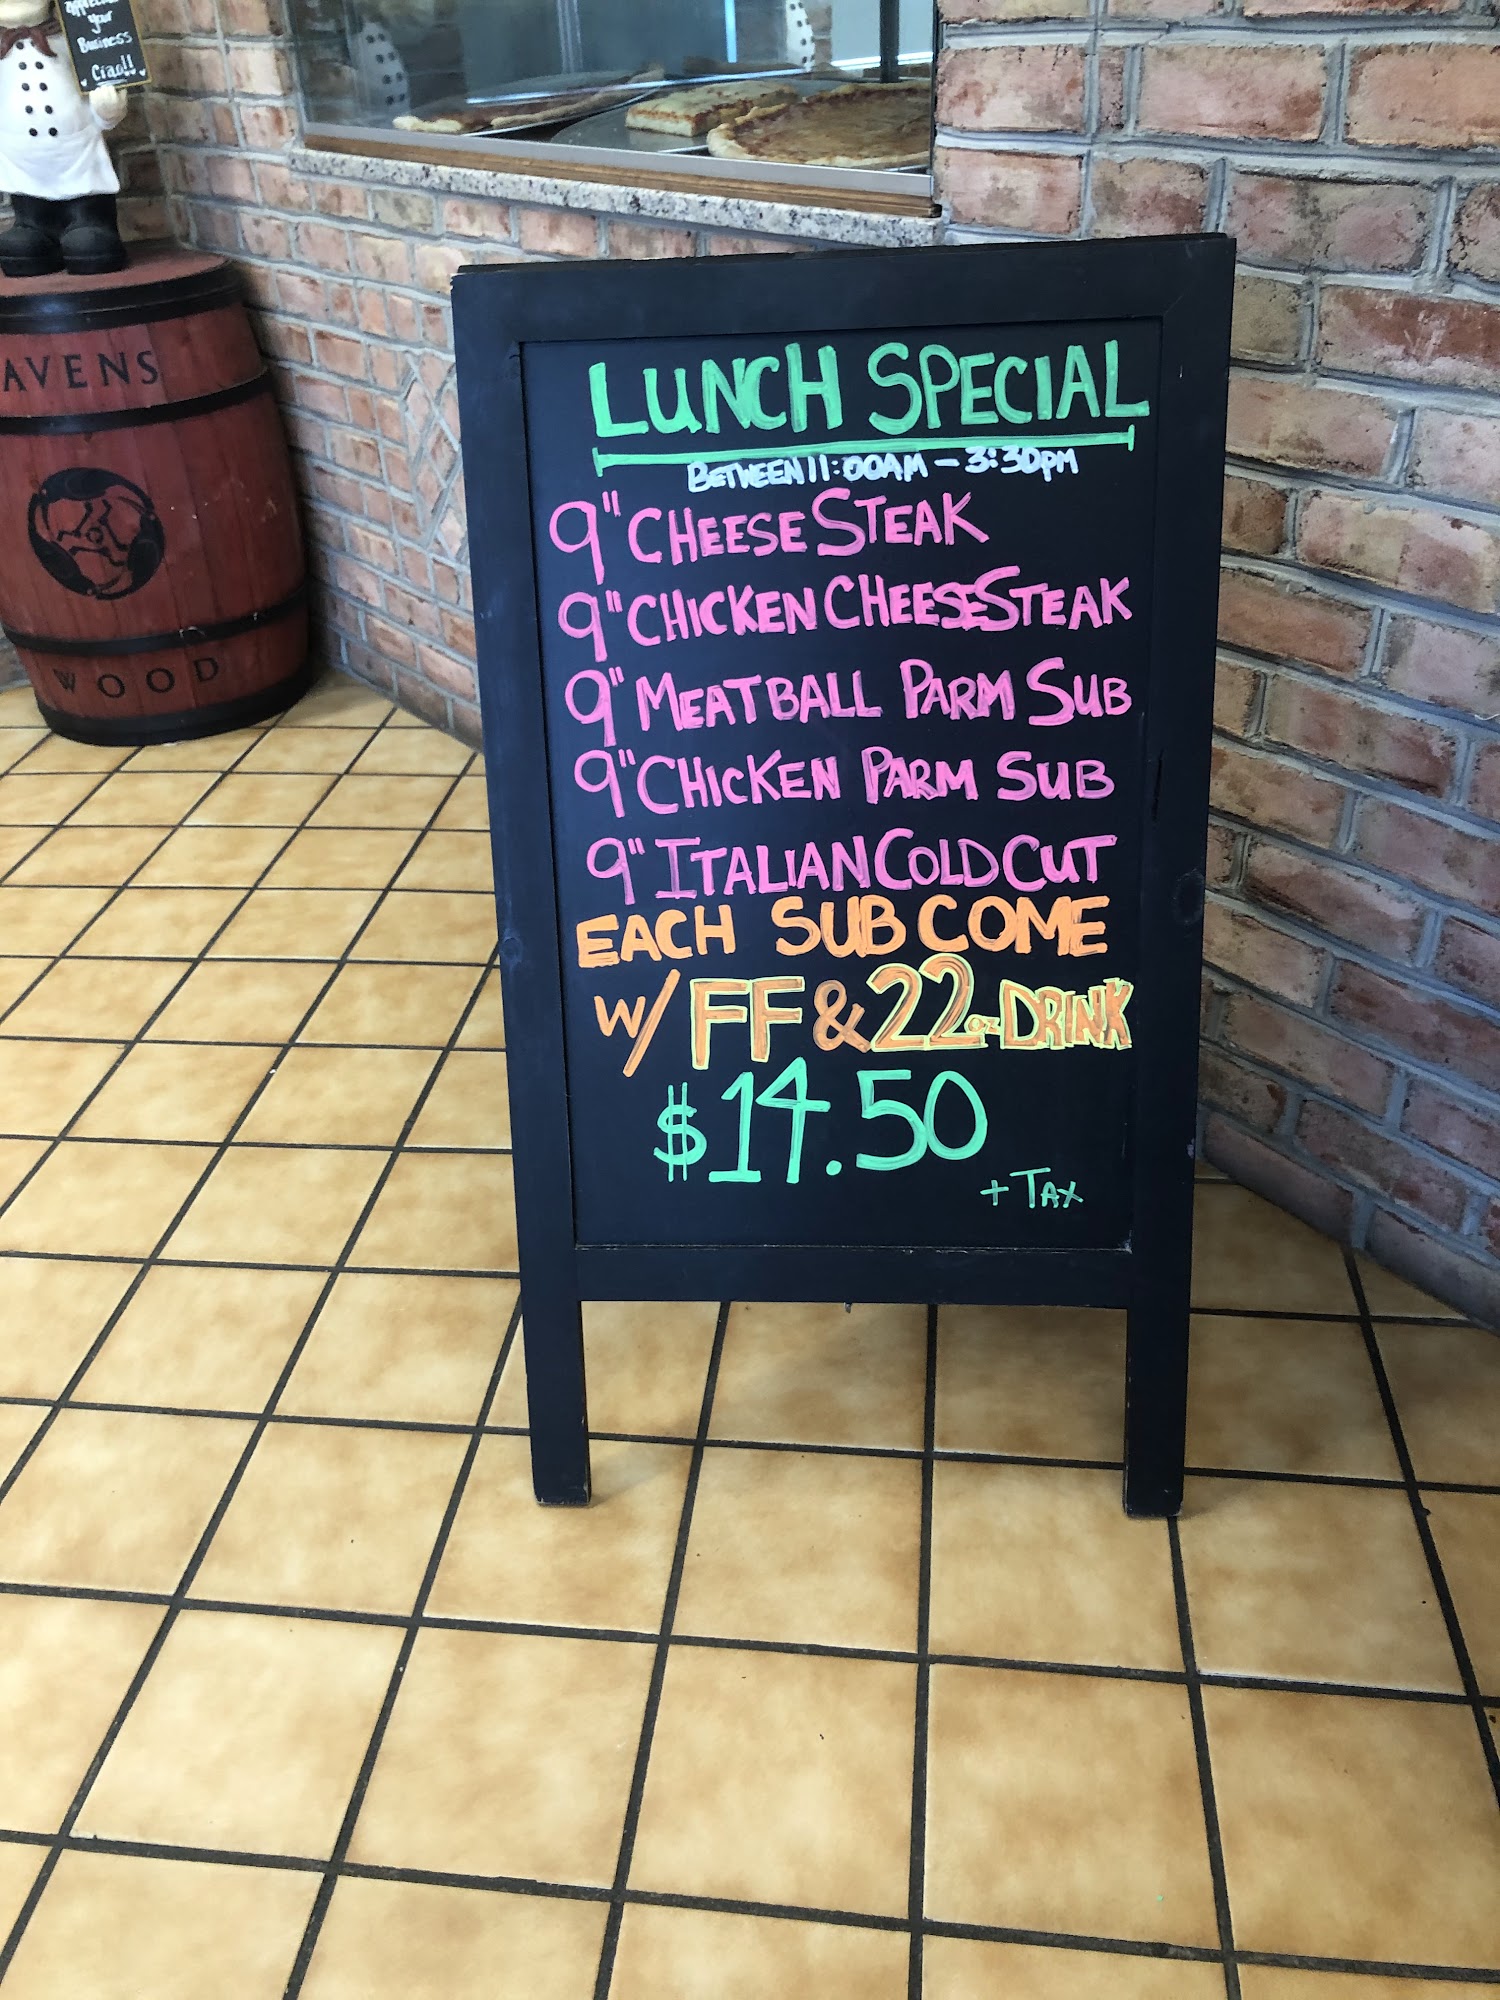 appreciate
your
Business
Ciao!!
AVENS
WOOD
LUNCH SPECIAL
BETWEEN 11:00AM - 3:30PM
9" CHEESE STEAK
9" CHICKEN CHEESESTEAK
9" MEATBALL PARM SUB
9" CHICKEN PARM SUB
9" ITALIAN COLD CUT
EACH SUB COME
W/ FF & 22oz DRINK
$14.50
+ TAX